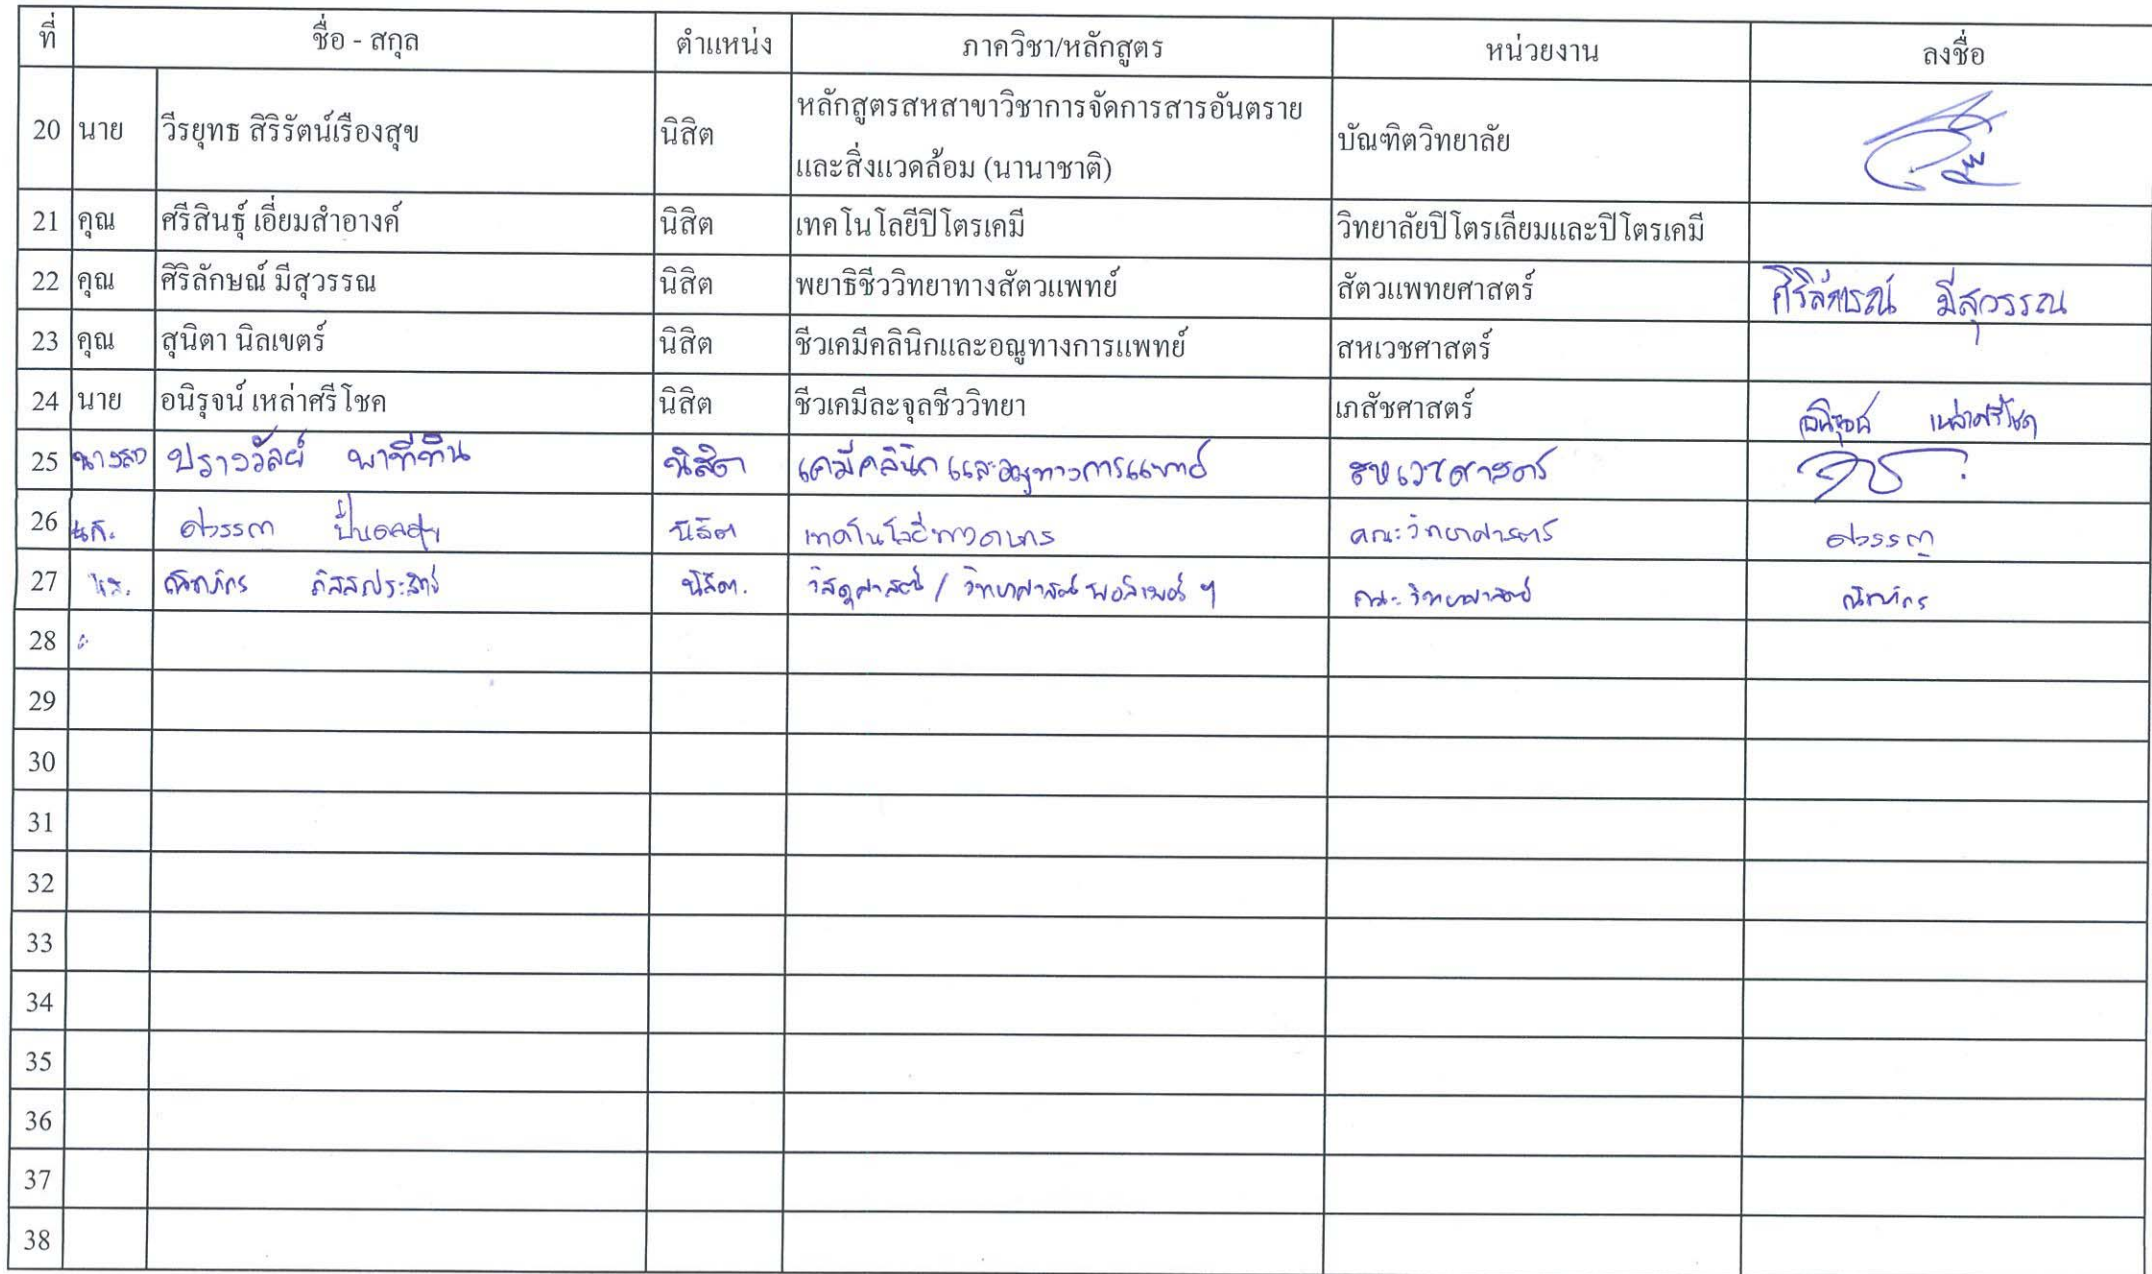 ที่ ชื่อ - สกุล ตำแหน่ง ภาควิชา/หลักสูตร หน่วยงาน ลงชื่อ
20 นาย วีรยุทธ สิริรัตน์เรืองสุข นิสิต หลักสูตรสหสาขาวิชาการจัดการสารอันตราย บัณฑิตวิทยาลัย
และสิ่งแวดล้อม (นานาชาติ)
21 คุณ ศรีสินธุ์ เอี่ยมสำอางค์ นิสิต เทคโนโลยีปิโตรเคมี วิทยาลัยปิโตรเลียมและปิโตรเคมี
22 คุณ ศิริลักษณ์ มีสุวรรณ นิสิต พยาธิชีววิทยาทางสัตวแพทย์ สัตวแพทยศาสตร์ ศิริลักษณ์ มีสุวรรณ
23 คุณ สุนิตา นิลเขตร์ นิสิต ชีวเคมีคลินิกและอณูทางการแพทย์ สหเวชศาสตร์
24 นาย อนิรุจน์ เหล่าศรีโชค นิสิต ชีวเคมีละจุลชีววิทยา เภสัชศาสตร์ อนิรุจน์ เหล่าศรีโชค
25 นางสาว ปรางวลัย พาทีทิน นิสิต เคมีคลินิกและอณูทางการแพทย์ สหเวชศาสตร์
26 นส. นิสิต เทคโนโลยีทางอาหาร คณะวิทยาศาสตร์
27 นส. นิสิต วัสดุศาสตร์ / วิทยาศาสตร์พอลิเมอร์ ฯ คณะวิทยาศาสตร์
28
29
30
31
32
33
34
35
36
37
38